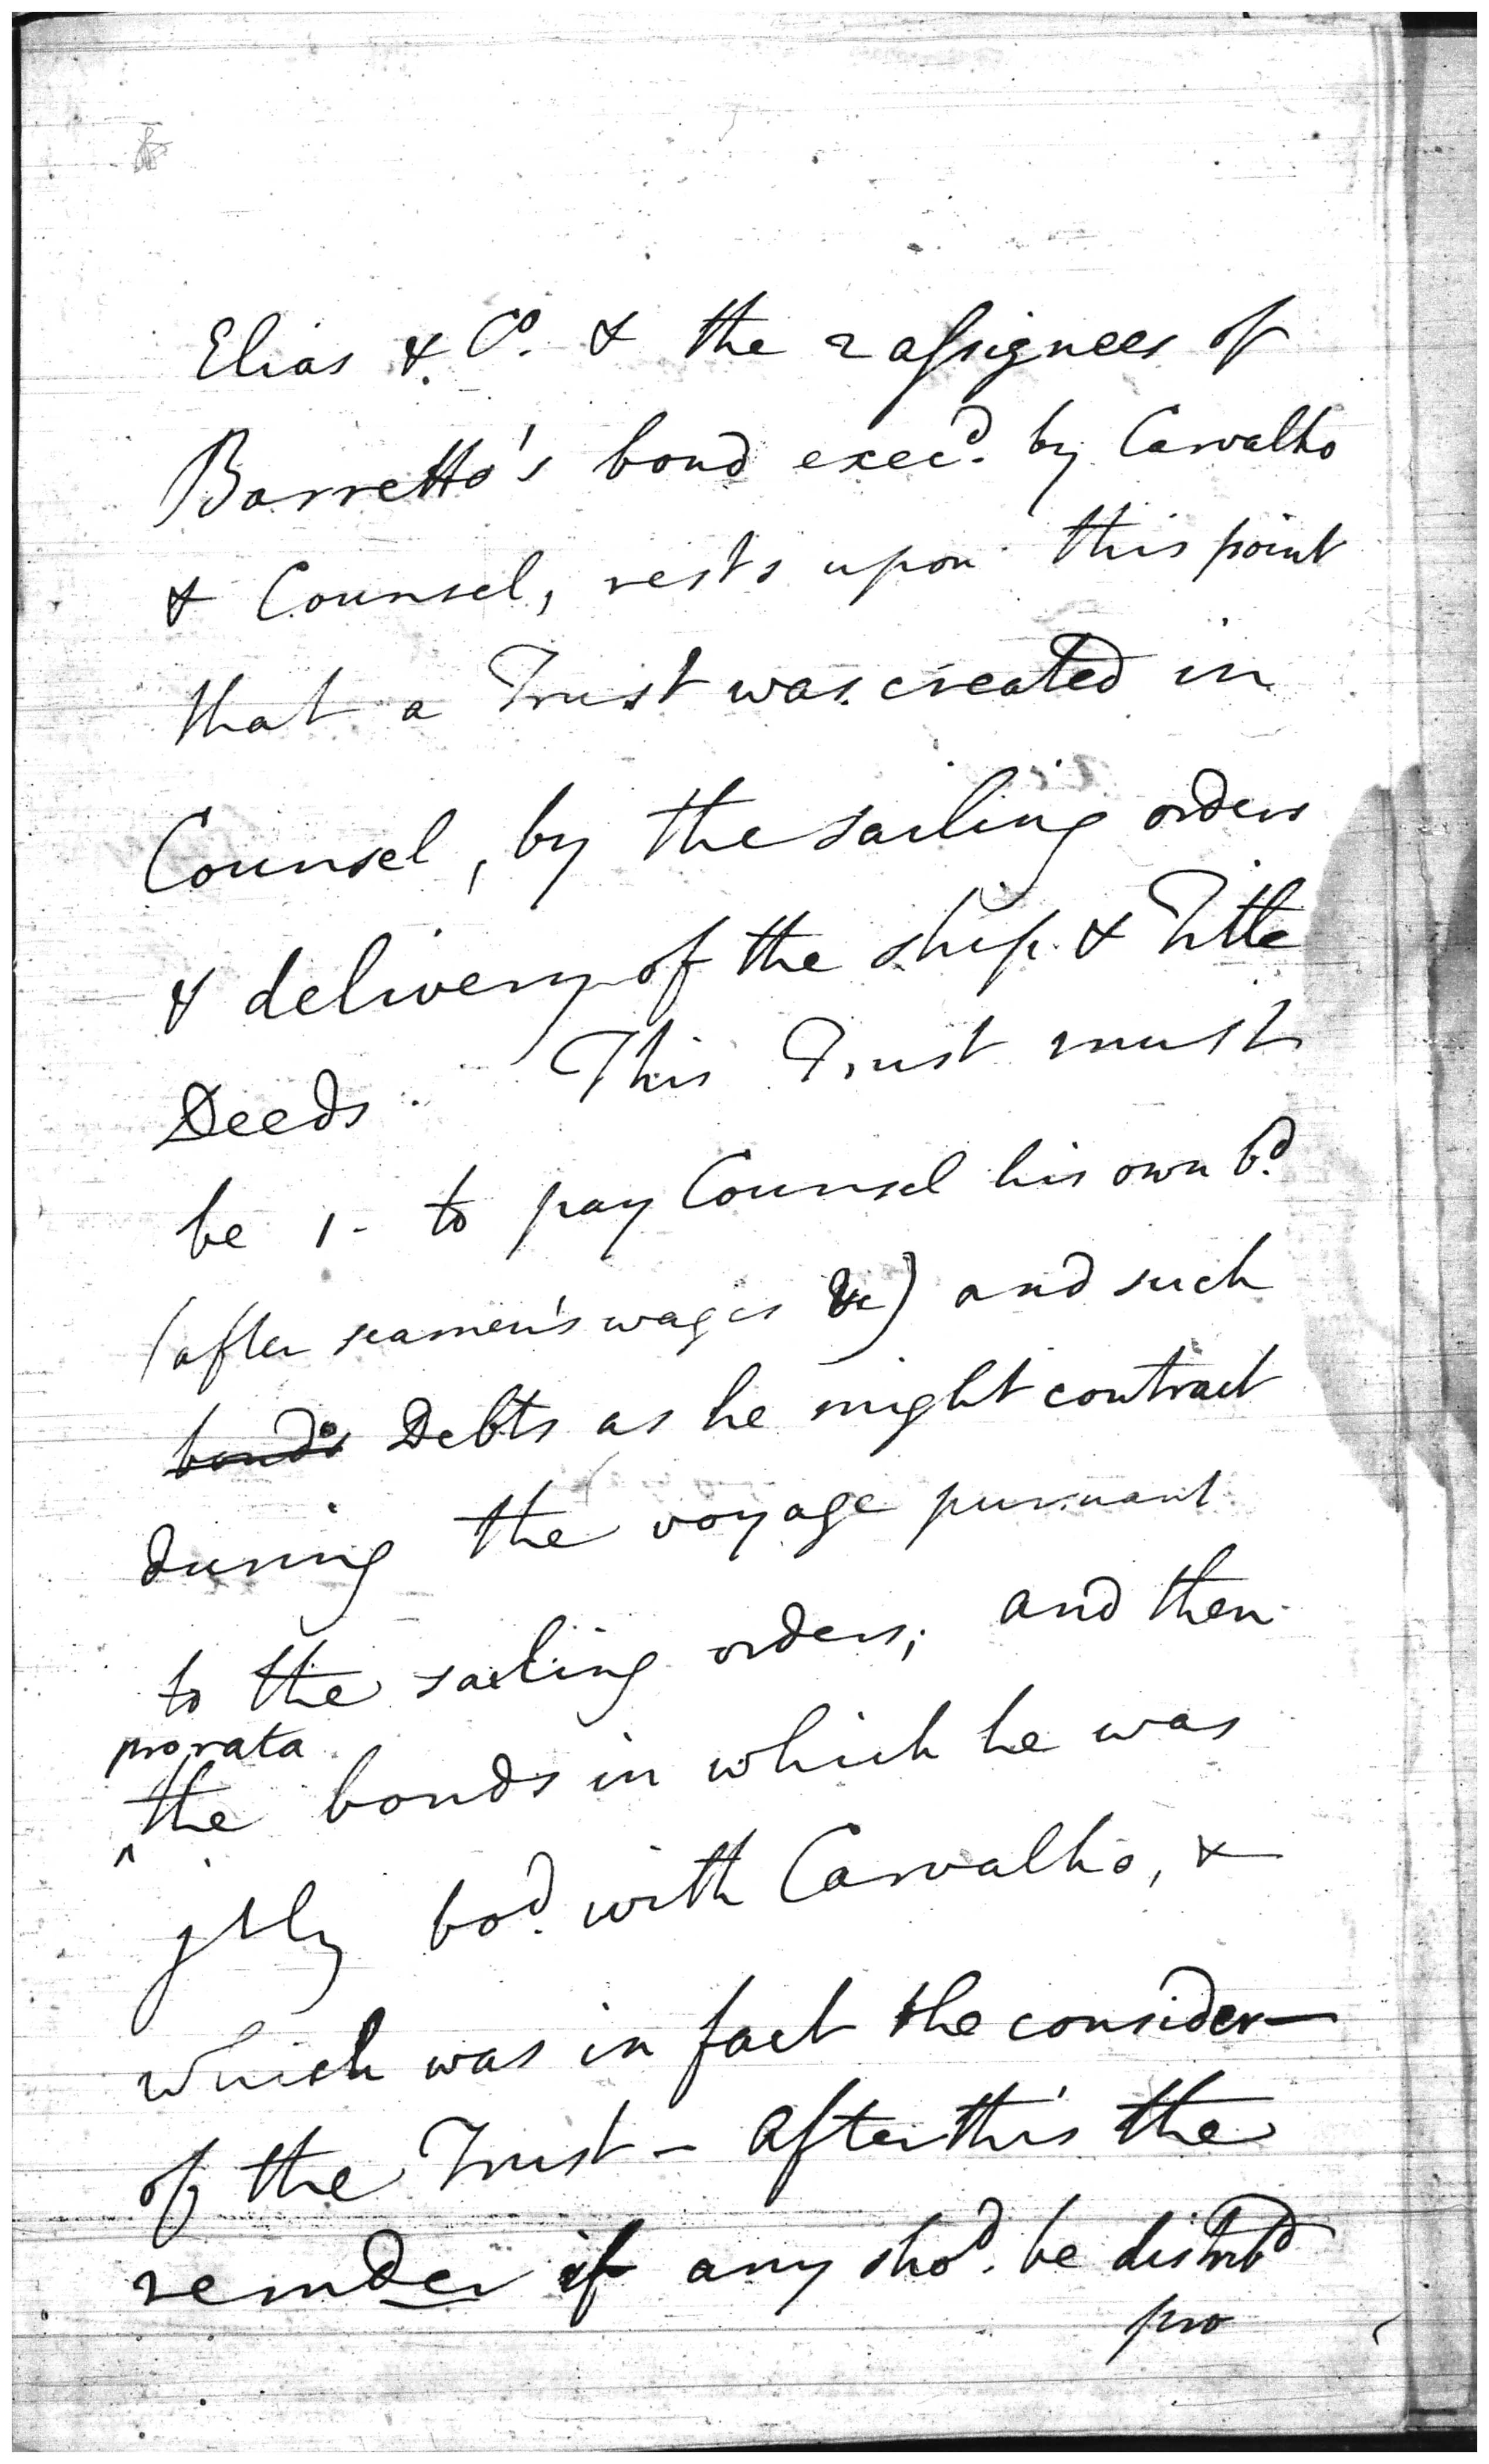 Elias & Co. & the 2 assignees of
Barretto's bond execd. by Carvalho
& Counsel, rests upon this point
that a Trust was created in
Counsel, by the sailing orders
& delivery of the ship & Title
Deeds. This Trust must
be 1- to pay Counsel his own bd.
(after seamen's wages &c) and such
bonds Debts as he might contract
during the voyage pursuant
to the sailing orders; and then
prorata
^ the bonds in which he was
jtly bod. with Carvalho, &
which was in fact the consider—
of the Trust - After this the
remder if any shod. be distribd
pro